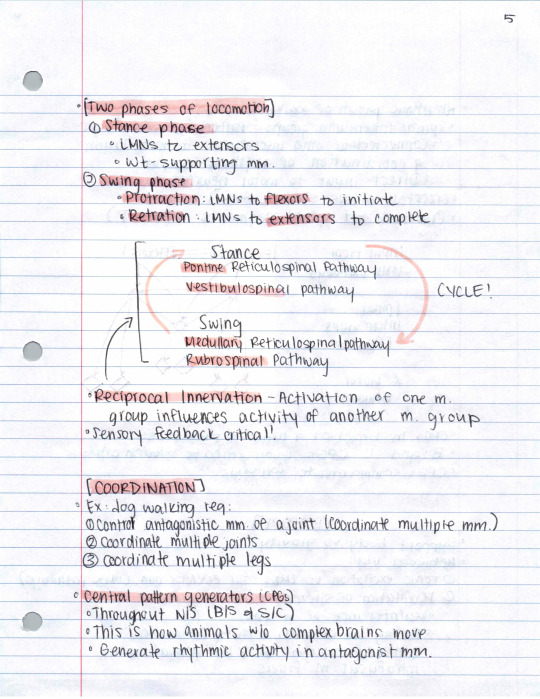 5
• [Two phases of locomotion]
① Stance phase
• LMNs to extensors
• Wt-supporting mm.
② Swing phase
• Protraction: LMNs to flexors to initiate
• Retration: LMNs to extensors to complete
Stance
Pontine Reticulospinal Pathway
Vestibulospinal pathway
CYCLE!
Swing
Medullary Reticulospinal pathway
Rubrospinal Pathway
• Reciprocal Innervation - Activation of one m.
group influences activity of another m. group
• Sensory feedback critical!
[COORDINATION]
• Ex: dog walking req:
① Control antagonistic mm. of a joint (coordinate multiple mm.)
② Coordinate multiple joints
③ Coordinate multiple legs
• Central pattern generators (CPGs)
• Throughout N/S (B/S & S/C)
• This is how animals w/o complex brains move
• Generate rhythmic activity in antagonist mm.